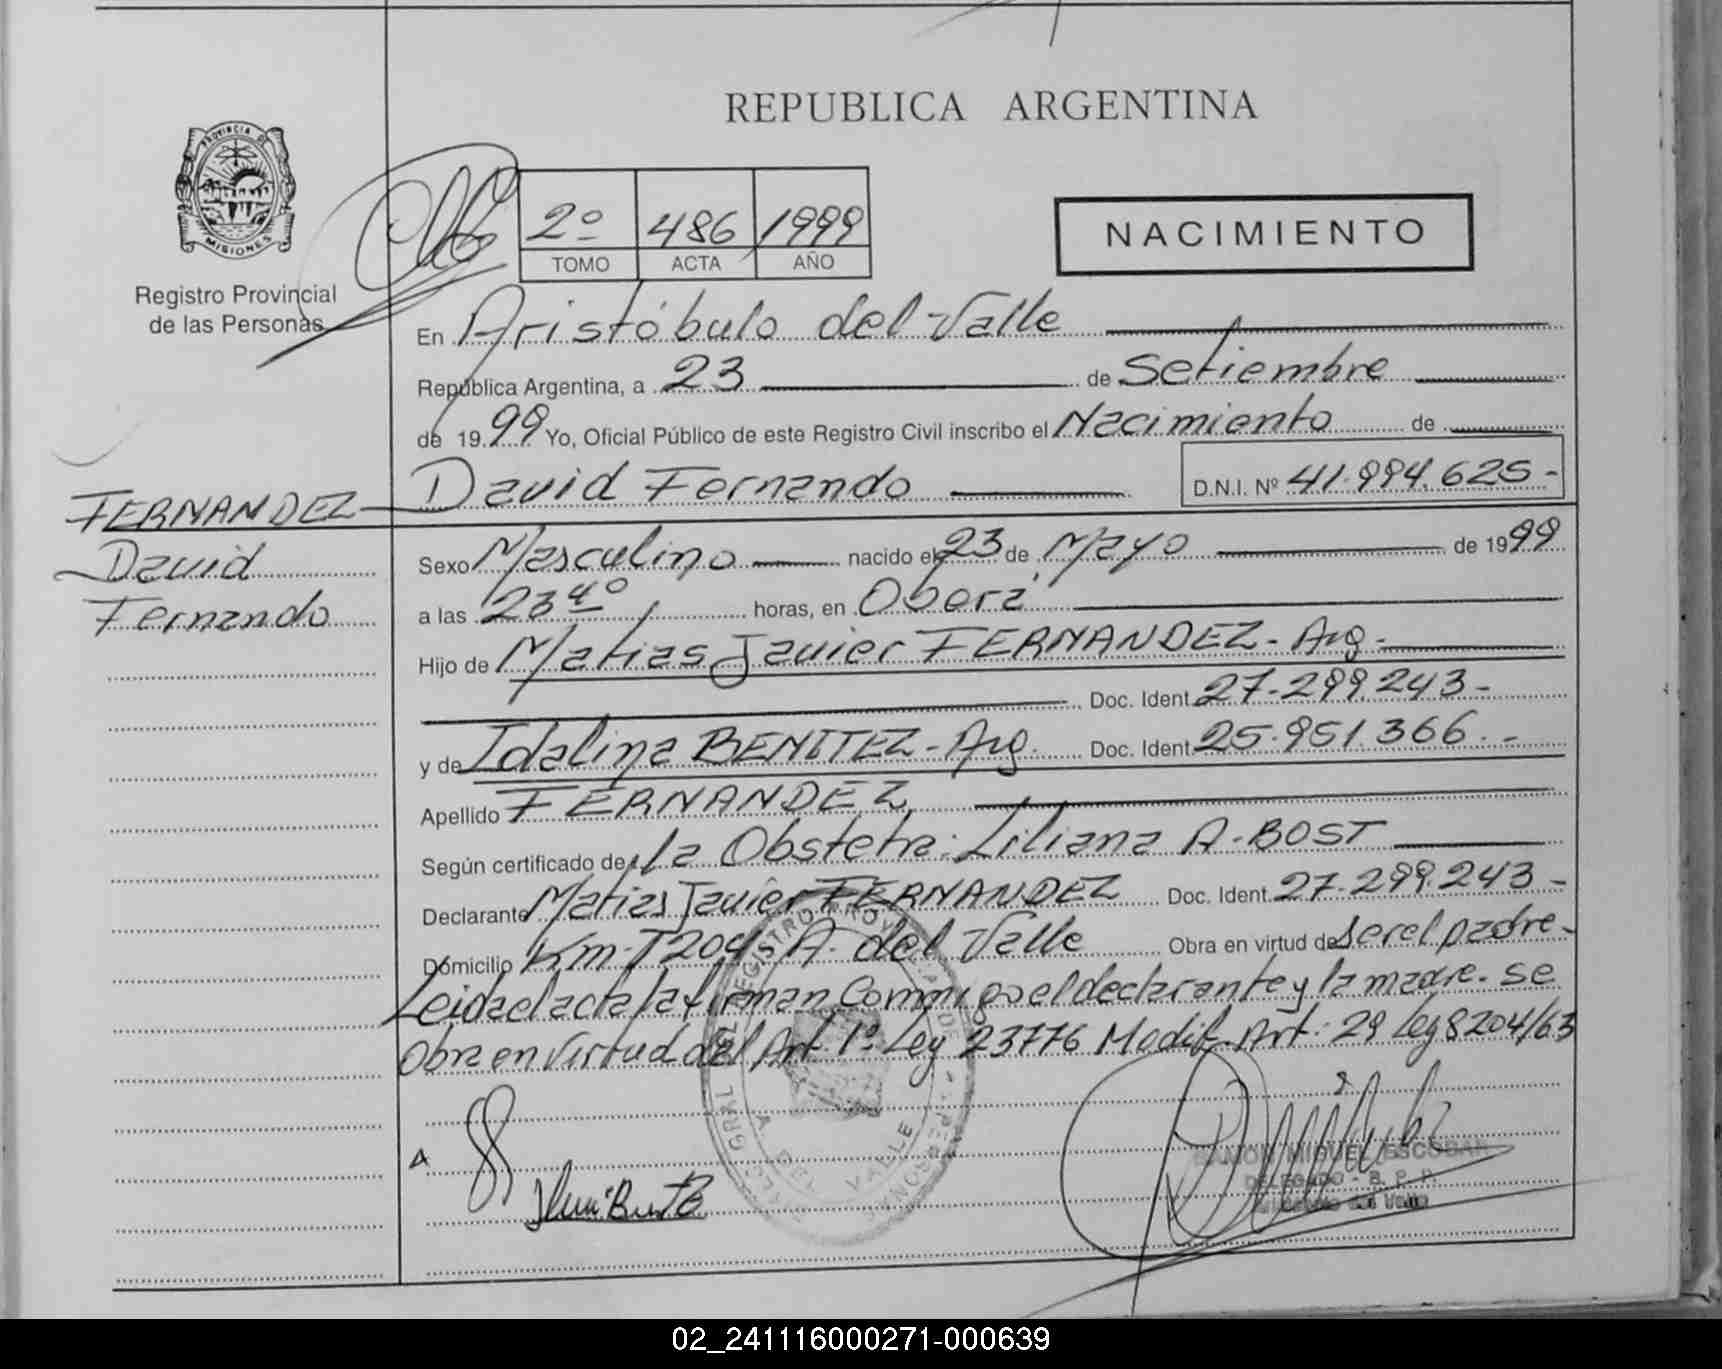 REPUBLICA ARGENTINA
PROVINCIA DE
MISIONES
Registro Provincial
de las Personas
2º 486 1999
TOMO ACTA AÑO
NACIMIENTO
En Aristóbulo del Valle
República Argentina, a 23 de Setiembre
de 1999 Yo, Oficial Público de este Registro Civil inscribo el Nacimiento de
David Fernando D.N.I. Nº 41.994.625-
FERNANDEZ
David
Fernando
Sexo Masculino nacido el 23 de Mayo de 1999
a las 23 40 horas, en Oberá
Hijo de Matias Javier FERNANDEZ - Arg -
Doc. Ident. 27.299.243-
y de Idalina BENITEZ - Arg. Doc. Ident. 25.951.366.-
Apellido FERNANDEZ
Según certificado de la Obstetra: Liliana A. BOST
Declarante Matias Javier FERNANDEZ Doc. Ident. 27.299.243-
Domicilio Km. 1204, A. del Valle Obra en virtud de ser el padre-
Leida el acta la firman Commigo el declarante y la madre. se
obra en Virtud del Art. 1º Ley 23776 Modif. Art: 29 Ley 8204/63
A. DEL VALLE
RAMON MIGUEL ESCOBAR
DELEGADO - R. P. P.
Aristóbulo del Valle
02_241116000271-000639